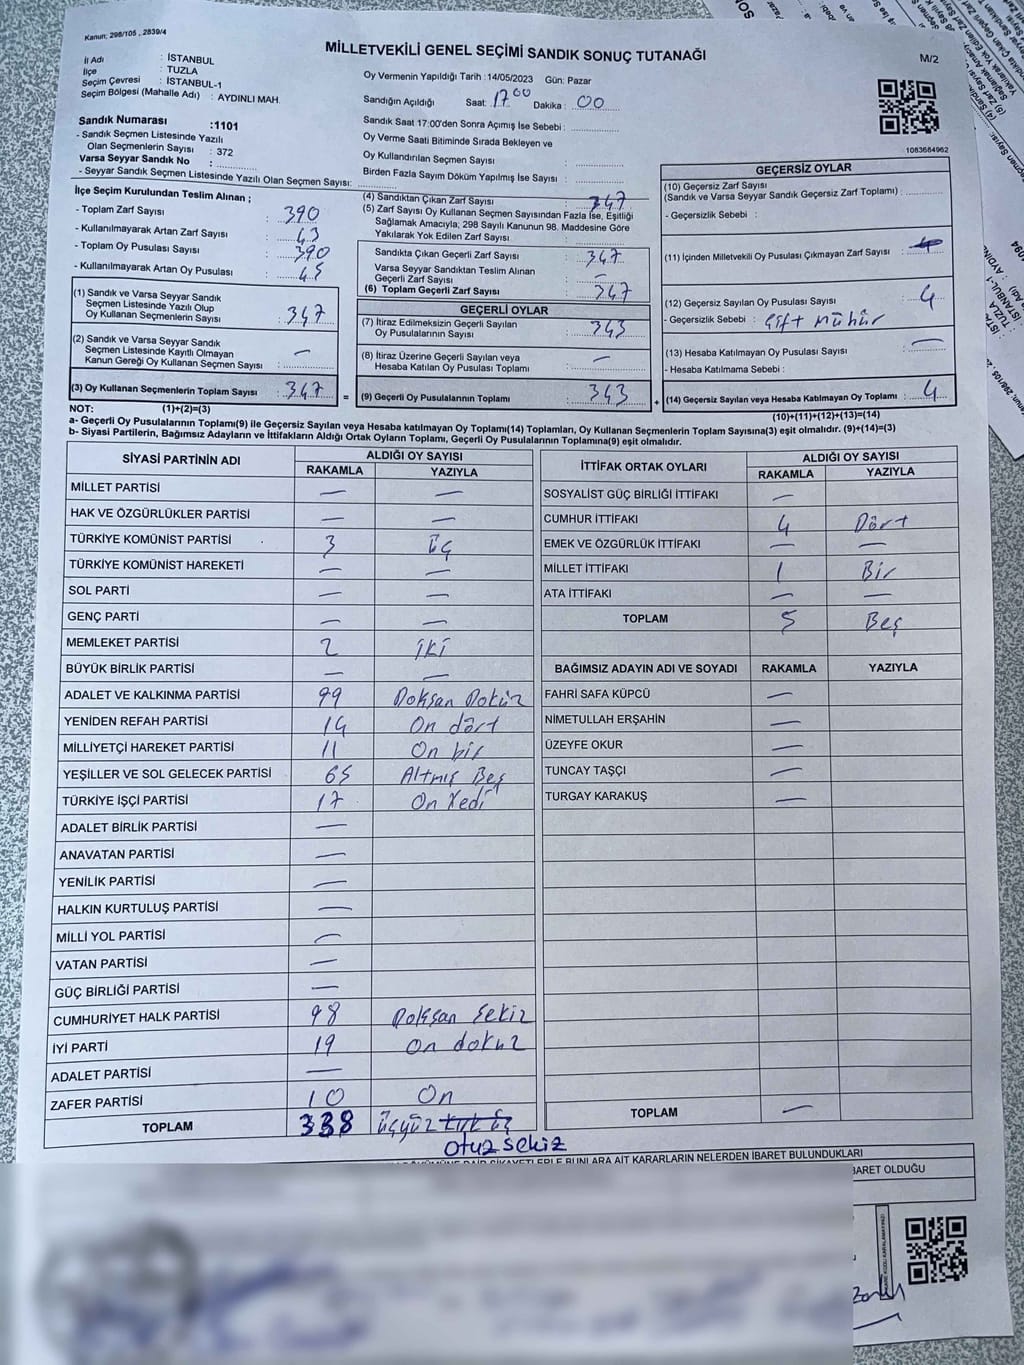 Kanun; 298/105 , 2839/4
MİLLETVEKİLİ GENEL SEÇİMİ SANDIK SONUÇ TUTANAĞI
M/2
İl Adı : İSTANBUL
İlçe : TUZLA
Seçim Çevresi : İSTANBUL-1
Seçim Bölgesi (Mahalle Adı) : AYDINLI MAH.
Oy Vermenin Yapıldığı Tarih : 14/05/2023 Gün: Pazar
Sandığın Açıldığı Saat: 17:00 Dakika : 00
Sandık Saat 17:00'den Sonra Açımış İse Sebebi :
Oy Verme Saati Bitiminde Sırada Bekleyen ve
Oy Kullandırılan Seçmen Sayısı :
Birden Fazla Sayım Döküm Yapılmış İse Sayısı :
1083684962
Sandık Numarası :1101
- Sandık Seçmen Listesinde Yazılı
Olan Seçmenlerin Sayısı : 372
Varsa Seyyar Sandık No :
- Seyyar Sandık Seçmen Listesinde Yazılı Olan Seçmen Sayısı:
İlçe Seçim Kurulundan Teslim Alınan ;
- Toplam Zarf Sayısı : 390
- Kullanılmayarak Artan Zarf Sayısı : 43
- Toplam Oy Pusulası Sayısı : 390
- Kullanılmayarak Artan Oy Pusulası : 45
(1) Sandık ve Varsa Seyyar Sandık
Seçmen Listesinde Yazılı Olup
Oy Kullanan Seçmenlerin Sayısı : 347
(2) Sandık ve Varsa Seyyar Sandık
Seçmen Listesinde Kayıtlı Olmayan
Kanun Gereği Oy Kullanan Seçmen Sayısı : —
(3) Oy Kullanan Seçmenlerin Toplam Sayısı : 347
(1)+(2)=(3)
(4) Sandıktan Çıkan Zarf Sayısı : 347
(5) Zarf Sayısı Oy Kullanan Seçmen Sayısından Fazla İse, Eşitliği
Sağlamak Amacıyla; 298 Sayılı Kanunun 98. Maddesine Göre
Yakılarak Yok Edilen Zarf Sayısı :
Sandıkta Çıkan Geçerli Zarf Sayısı : 347
Varsa Seyyar Sandıktan Teslim Alınan
Geçerli Zarf Sayısı : —
(6) Toplam Geçerli Zarf Sayısı : 347
GEÇERLİ OYLAR
(7) İtiraz Edilmeksizin Geçerli Sayılan
Oy Pusulalarının Sayısı : 343
(8) İtiraz Üzerine Geçerli Sayılan veya
Hesaba Katılan Oy Pusulası Toplamı : —
= (9) Geçerli Oy Pusulalarının Toplamı : 343
GEÇERSİZ OYLAR
(10) Geçersiz Zarf Sayısı
(Sandık ve Varsa Seyyar Sandık Geçersiz Zarf Toplamı) :
- Geçersizlik Sebebi :
(11) İçinden Milletvekili Oy Pusulası Çıkmayan Zarf Sayısı :
(12) Geçersiz Sayılan Oy Pusulası Sayısı : 4
- Geçersizlik Sebebi : Çift mühür
(13) Hesaba Katılmayan Oy Pusulası Sayısı : —
- Hesaba Katılmama Sebebi :
+ (14) Geçersiz Sayılan veya Hesaba Katılmayan Oy Toplamı : 4
(10)+(11)+(12)+(13)=(14)
NOT:
a- Geçerli Oy Pusulalarının Toplamı(9) ile Geçersiz Sayılan veya Hesaba katılmayan Oy Toplamı(14) Toplamları, Oy Kullanan Seçmenlerin Toplam Sayısına(3) eşit olmalıdır. (9)+(14)=(3)
b- Siyasi Partilerin, Bağımsız Adayların ve İttifakların Aldığı Ortak Oyların Toplamı, Geçerli Oy Pusulalarının Toplamına(9) eşit olmalıdır.
SİYASİ PARTİNİN ADI ALDIĞI OY SAYISI
RAKAMLA YAZIYLA
MİLLET PARTİSİ — —
HAK VE ÖZGÜRLÜKLER PARTİSİ — —
TÜRKİYE KOMÜNİST PARTİSİ 3 üç
TÜRKİYE KOMÜNİST HAREKETİ — —
SOL PARTİ — —
GENÇ PARTİ — —
MEMLEKET PARTİSİ 2 iki
BÜYÜK BİRLİK PARTİSİ — —
ADALET VE KALKINMA PARTİSİ 99 Doksan Dokuz
YENİDEN REFAH PARTİSİ 14 On dört
MİLLİYETÇİ HAREKET PARTİSİ 11 On bir
YEŞİLLER VE SOL GELECEK PARTİSİ 65 Altmış Beş
TÜRKİYE İŞÇİ PARTİSİ 17 On Yedi
ADALET BİRLİK PARTİSİ —
ANAVATAN PARTİSİ —
YENİLİK PARTİSİ —
HALKIN KURTULUŞ PARTİSİ —
MİLLİ YOL PARTİSİ —
VATAN PARTİSİ —
GÜÇ BİRLİĞİ PARTİSİ —
CUMHURİYET HALK PARTİSİ 98 Doksan Sekiz
İYİ PARTİ 19 On dokuz
ADALET PARTİSİ —
ZAFER PARTİSİ 10 On
TOPLAM 338 üçyüz kırk üç
otuz sekiz
İTTİFAK ORTAK OYLARI ALDIĞI OY SAYISI
RAKAMLA YAZIYLA
SOSYALİST GÜÇ BİRLİĞİ İTTİFAKI —
CUMHUR İTTİFAKI 4 Dört
EMEK VE ÖZGÜRLÜK İTTİFAKI — —
MİLLET İTTİFAKI 1 Bir
ATA İTTİFAKI — —
TOPLAM 5 Beş
BAĞIMSIZ ADAYIN ADI VE SOYADI RAKAMLA YAZIYLA
FAHRİ SAFA KÜPCÜ —
NİMETULLAH ERŞAHİN —
ÜZEYFE OKUR —
TUNCAY TAŞÇI —
TURGAY KARAKUŞ —
TOPLAM —
BUNLARA AİT KARARLARIN NELERDEN İBARET BULUNDUKLARI
İBARET OLDUĞU